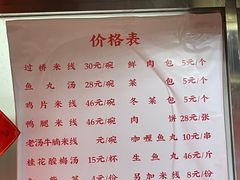 价格表
过桥米线 30元/碗 鲜肉包 5元/个
鱼丸汤 28元/碗 菜包 5元/个
鸡片米线 46元/碗 冬菜包 5元/个
鸭腿米线 46元/碗
老汤牛腩米线 元/碗 咖喱鱼丸 10元/串
桂花酸梅汤 15元/杯 生鱼丸 46元/斤
28元/碗 另加米线 8元/份